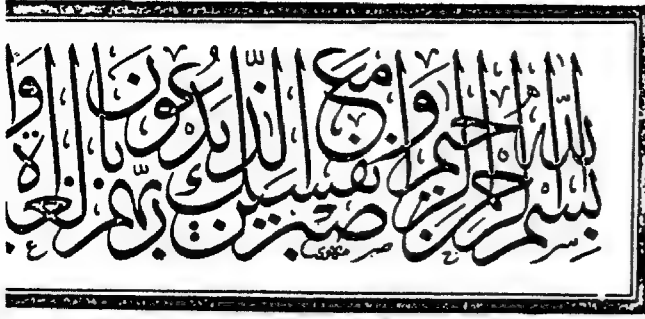 بسم الله الرحمن الرحيم واصبر نفسك مع الذين يدعون ربهم بالغداة